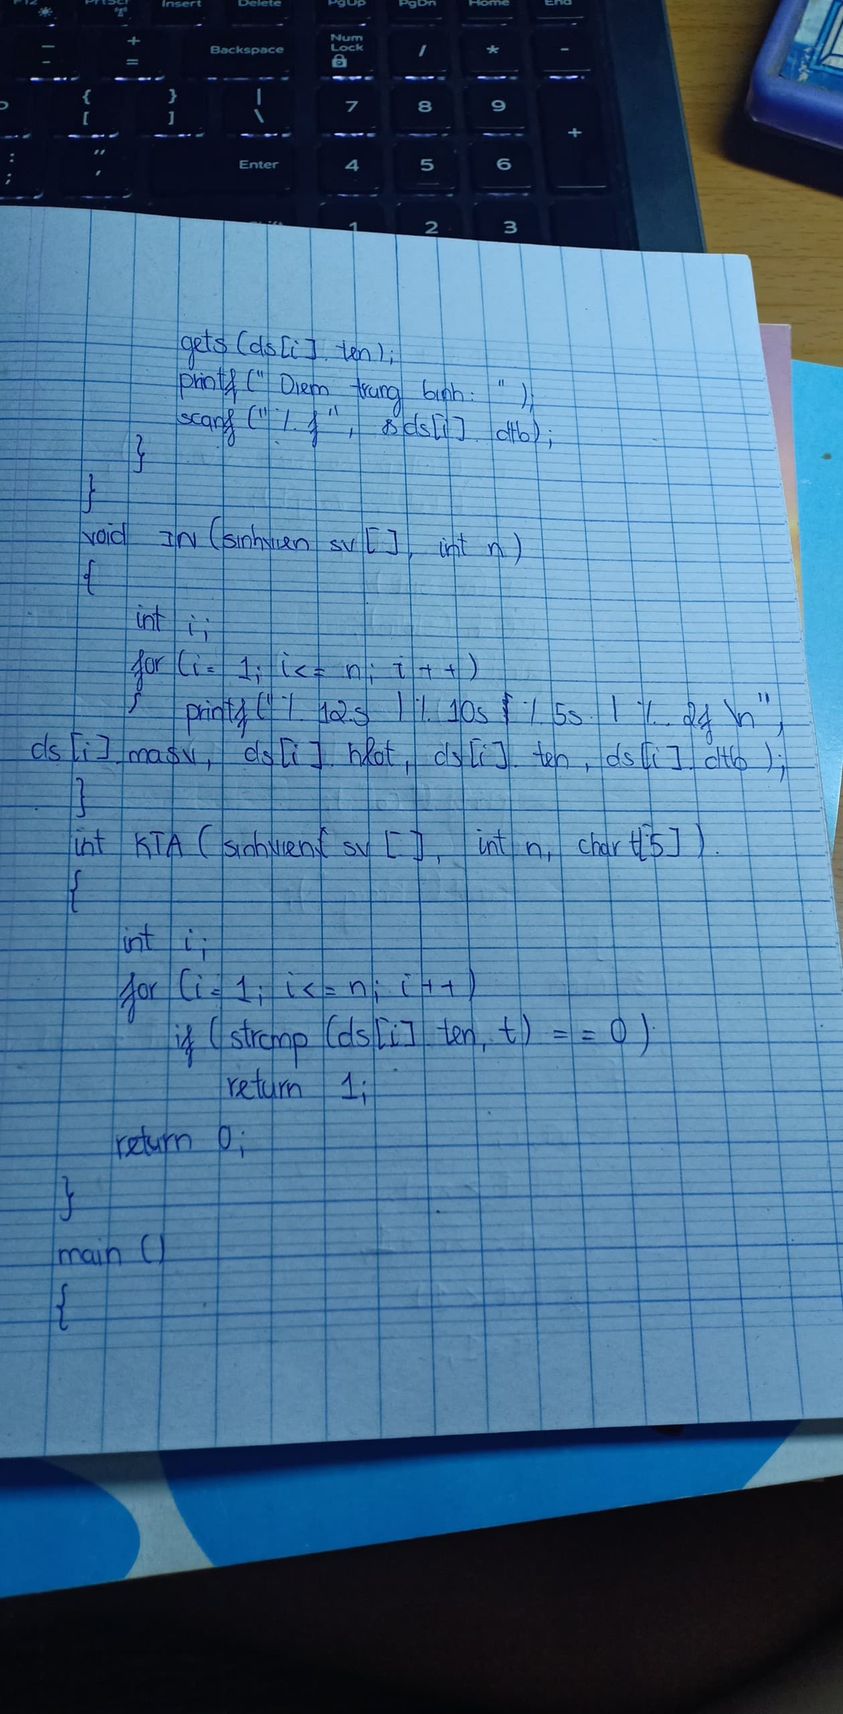 PrtScr Insert Delete PgUp PgDn Home End
- + Backspace Num Lock / * -
- =
{ } | 7 8 9
[ ] \ +
: " Enter 4 5 6
; '
1 2 3
gets (ds[i]. ten);
printf (" Diem trung binh: ");
scanf ("%f", &ds[i]. dtb);
}
}
void IN (sinhvien sv[], int n)
{
int i;
for (i= 1; i<= n; i++)
{ printf ("%12s | %10s | %5s | %.2f \n",
ds[i]. masv, ds[i]. hlot, ds[i]. ten, ds[i]. dtb );
}
int KTA ( sinhvien sv [], int n, char t[5] ).
{
int i;
for (i= 1; i<= n; i++)
if ( strcmp (ds[i]. ten, t) == 0)
return 1;
return 0;
}
main ()
{